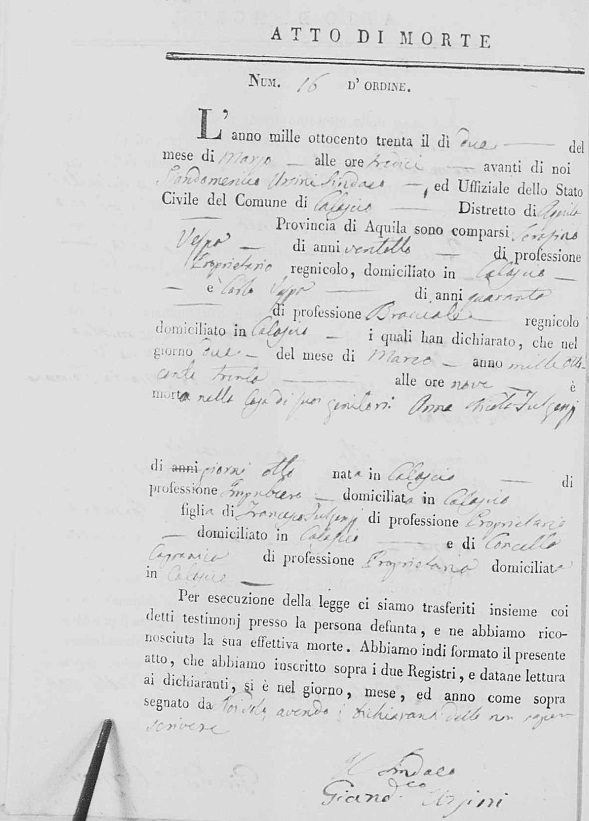 ATTO DI MORTE
NUM. 16 D' ORDINE.
L' anno mille ottocento trenta il dì due del
mese di Marzo alle ore tredici avanti di noi
Giandomenico Ursini Sindaco, ed Uffiziale dello Stato
Civile del Comune di Calascio Distretto di Aquila
Provincia di Aquila sono comparsi Serafino
Vespa di anni ventotto di professione
Proprietario regnicolo, domiciliato in Calascio
e Carlo Vespa di anni quaranta
di professione Bracciale regnicolo
domiciliato in Calascio i quali han dichiarato, che nel
giorno due del mese di Marzo anno mille otto
cento trenta alle ore nove è
morta nella Casa di suoi genitori Anna Nicola Fulgenzj
di anni giorni otto nata in Calascio di
professione Impubere domiciliata in Calascio
figlia di Francesco Fulgenzj di professione Proprietario
domiciliato in Calascio e di
di professione Proprietaria domiciliata
in Calascio
Per esecuzione della legge ci siamo trasferiti insieme coi
detti testimonj presso la persona defunta, e ne abbiamo rico-
nosciuta la sua effettiva morte. Abbiamo indi formato il presente
atto, che abbiamo inscritto sopra i due Registri, e datane lettura
ai dichiaranti, si è nel giorno, mese, ed anno come sopra
segnato da Noi solo, avendo i dichiaranti detto non saper
scrivere
Il Sindaco
Giand.co Ursini